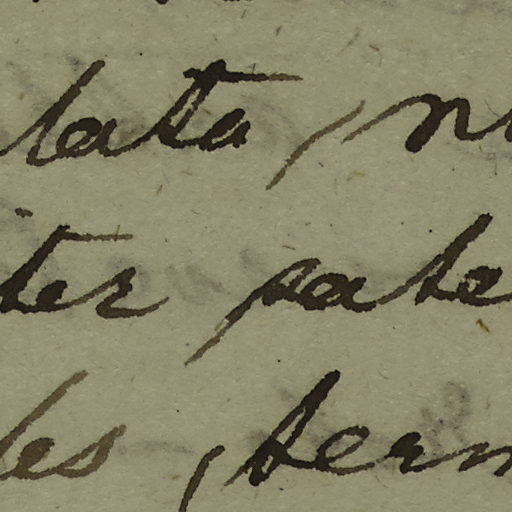 lata, n
ter pate
les, term